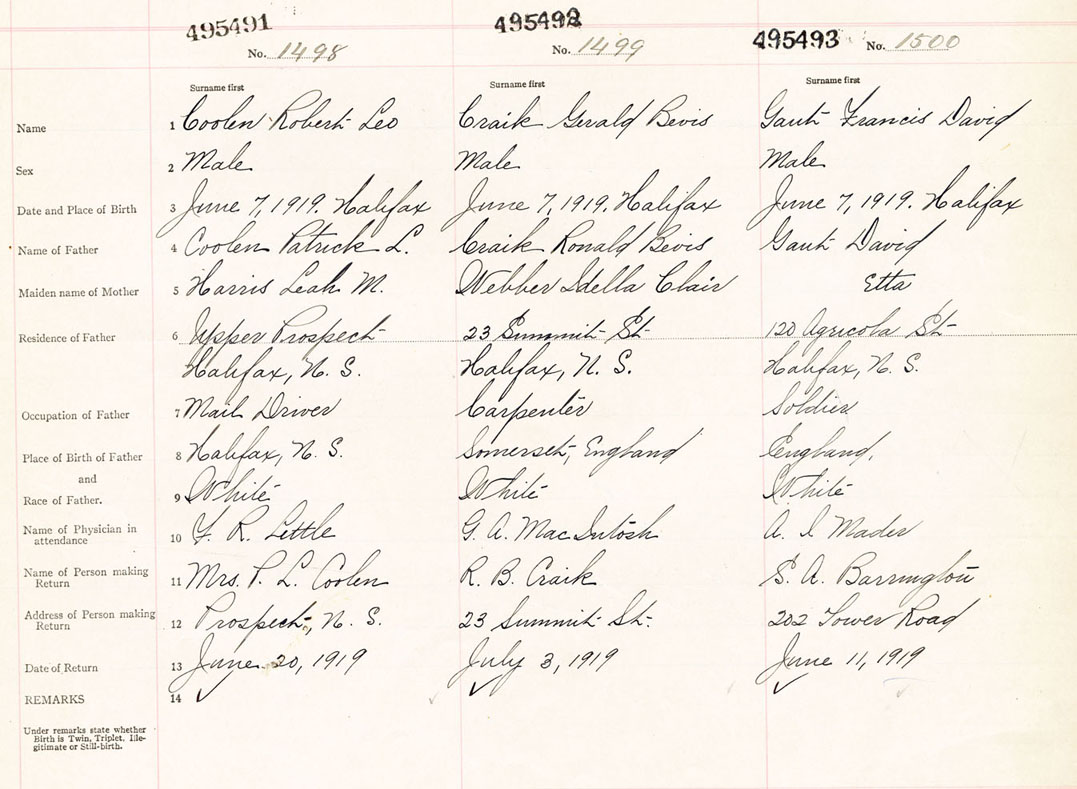 495491 495492 495493
No. 1498 No. 1499 No. 1500
Surname first Surname first Surname first
Name 1 Coolen Robert Leo Craik Gerald Bevis Gaut Francis David
Sex 2 Male Male Male
Date and Place of Birth 3 June 7, 1919. Halifax June 7, 1919. Halifax June 7, 1919. Halifax
Name of Father 4 Coolen Patrick L. Craik Ronald Bevis Gaut David
Maiden name of Mother 5 Harris Leah M. Webber Idella Clair Etta
Residence of Father 6 Upper Prospect 23 Summit St 120 Agricola St
Halifax, N. S. Halifax, N. S. Halifax, N. S.
Occupation of Father 7 Mail Driver Carpenter Soldier
Place of Birth of Father 8 Halifax, N. S. Somerset, England England,
and
Race of Father. 9 White White White
Name of Physician in
attendance 10 F. R. Little G. A. MacIntosh A. I Mader
Name of Person making
Return 11 Mrs. P. L. Coolen R. B. Craik S. A. Barrington
Address of Person making
Return 12 Prospect, N. S. 23 Summit St. 202 Tower Road
Date of Return 13 June 20, 1919 July 3, 1919 June 11, 1919
REMARKS 14 ✓ ✓ ✓
Under remarks state whether
Birth is Twin, Triplet, Ille-
gitimate or Still-birth.